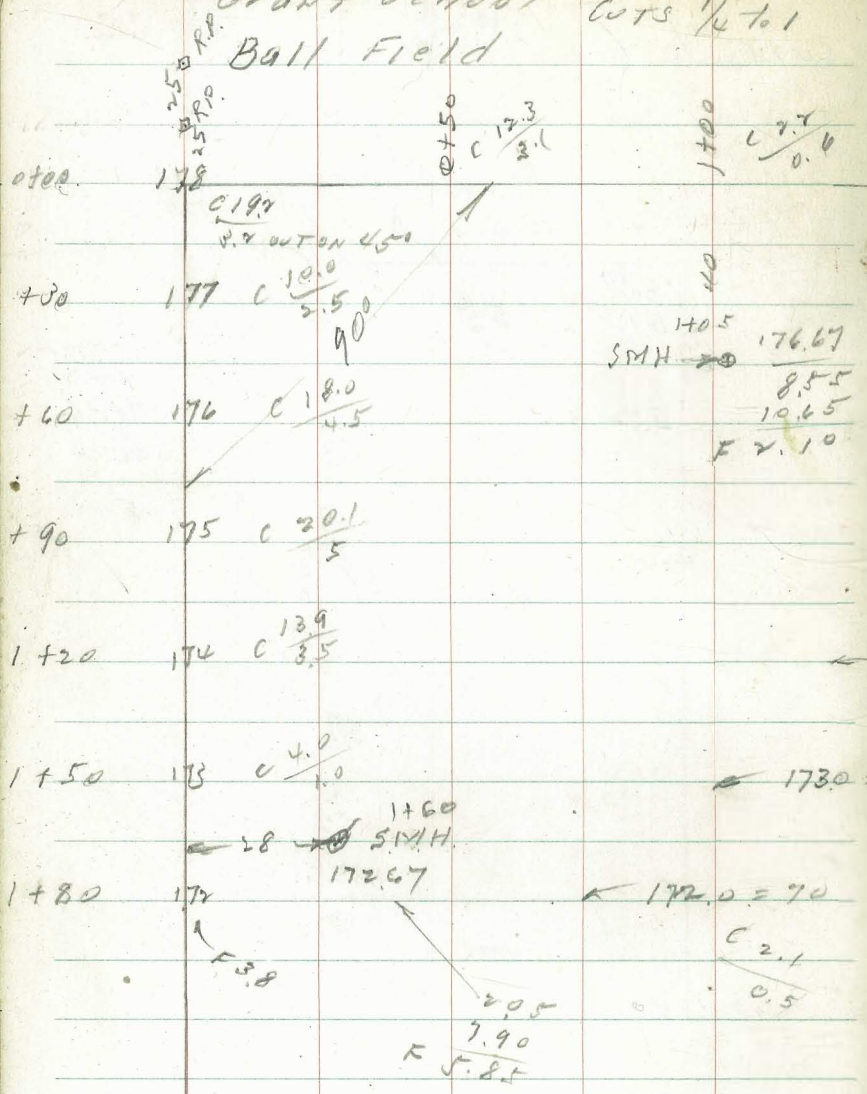 School Cuts 1/4 to 1
Ball Field
25 R.P.
25 R.P.
0+50
C 12.3/3.1
1+00
C 2.2/0.6
0+00 178
C 19.2
OUT ON 450
+30 177 C 10.0/2.5
90°
40
1+05
SMH 176.67
8.55
10.65
F 2.10
+60 176 C 18.0/4.5
+90 175 C 20.1/5
1+20 174 C 13.9/3.5
1+50 173 C 4.0/1.0
1730
1+60
28 SMH
172.67
1+80 172 172.0 = 90
F 3.8
C 2.1/0.5
2.05
7.90
F 5.85